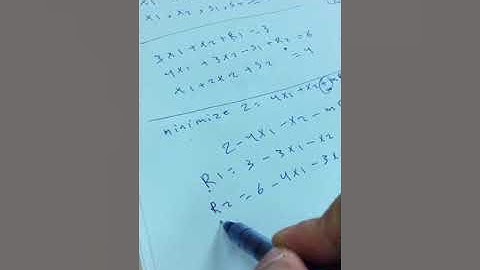 x1, x2, s1, s
3x1 + x2 + R1 = 3
4x1 + 3x2 - s1 + R2 = 6
x1 + 2x2 + s2 = 4
minimize Z = 4x1 + x2 + m
Z - 4x1 - x2 - m
R1 = 3 - 3x1 - x2
R2 = 6 - 4x1 - 3x